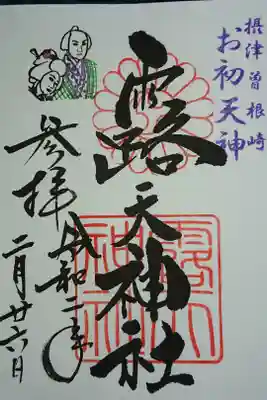 摂津曽根崎
お初天神
露天神社
令和二年
二月廿六日
参拝